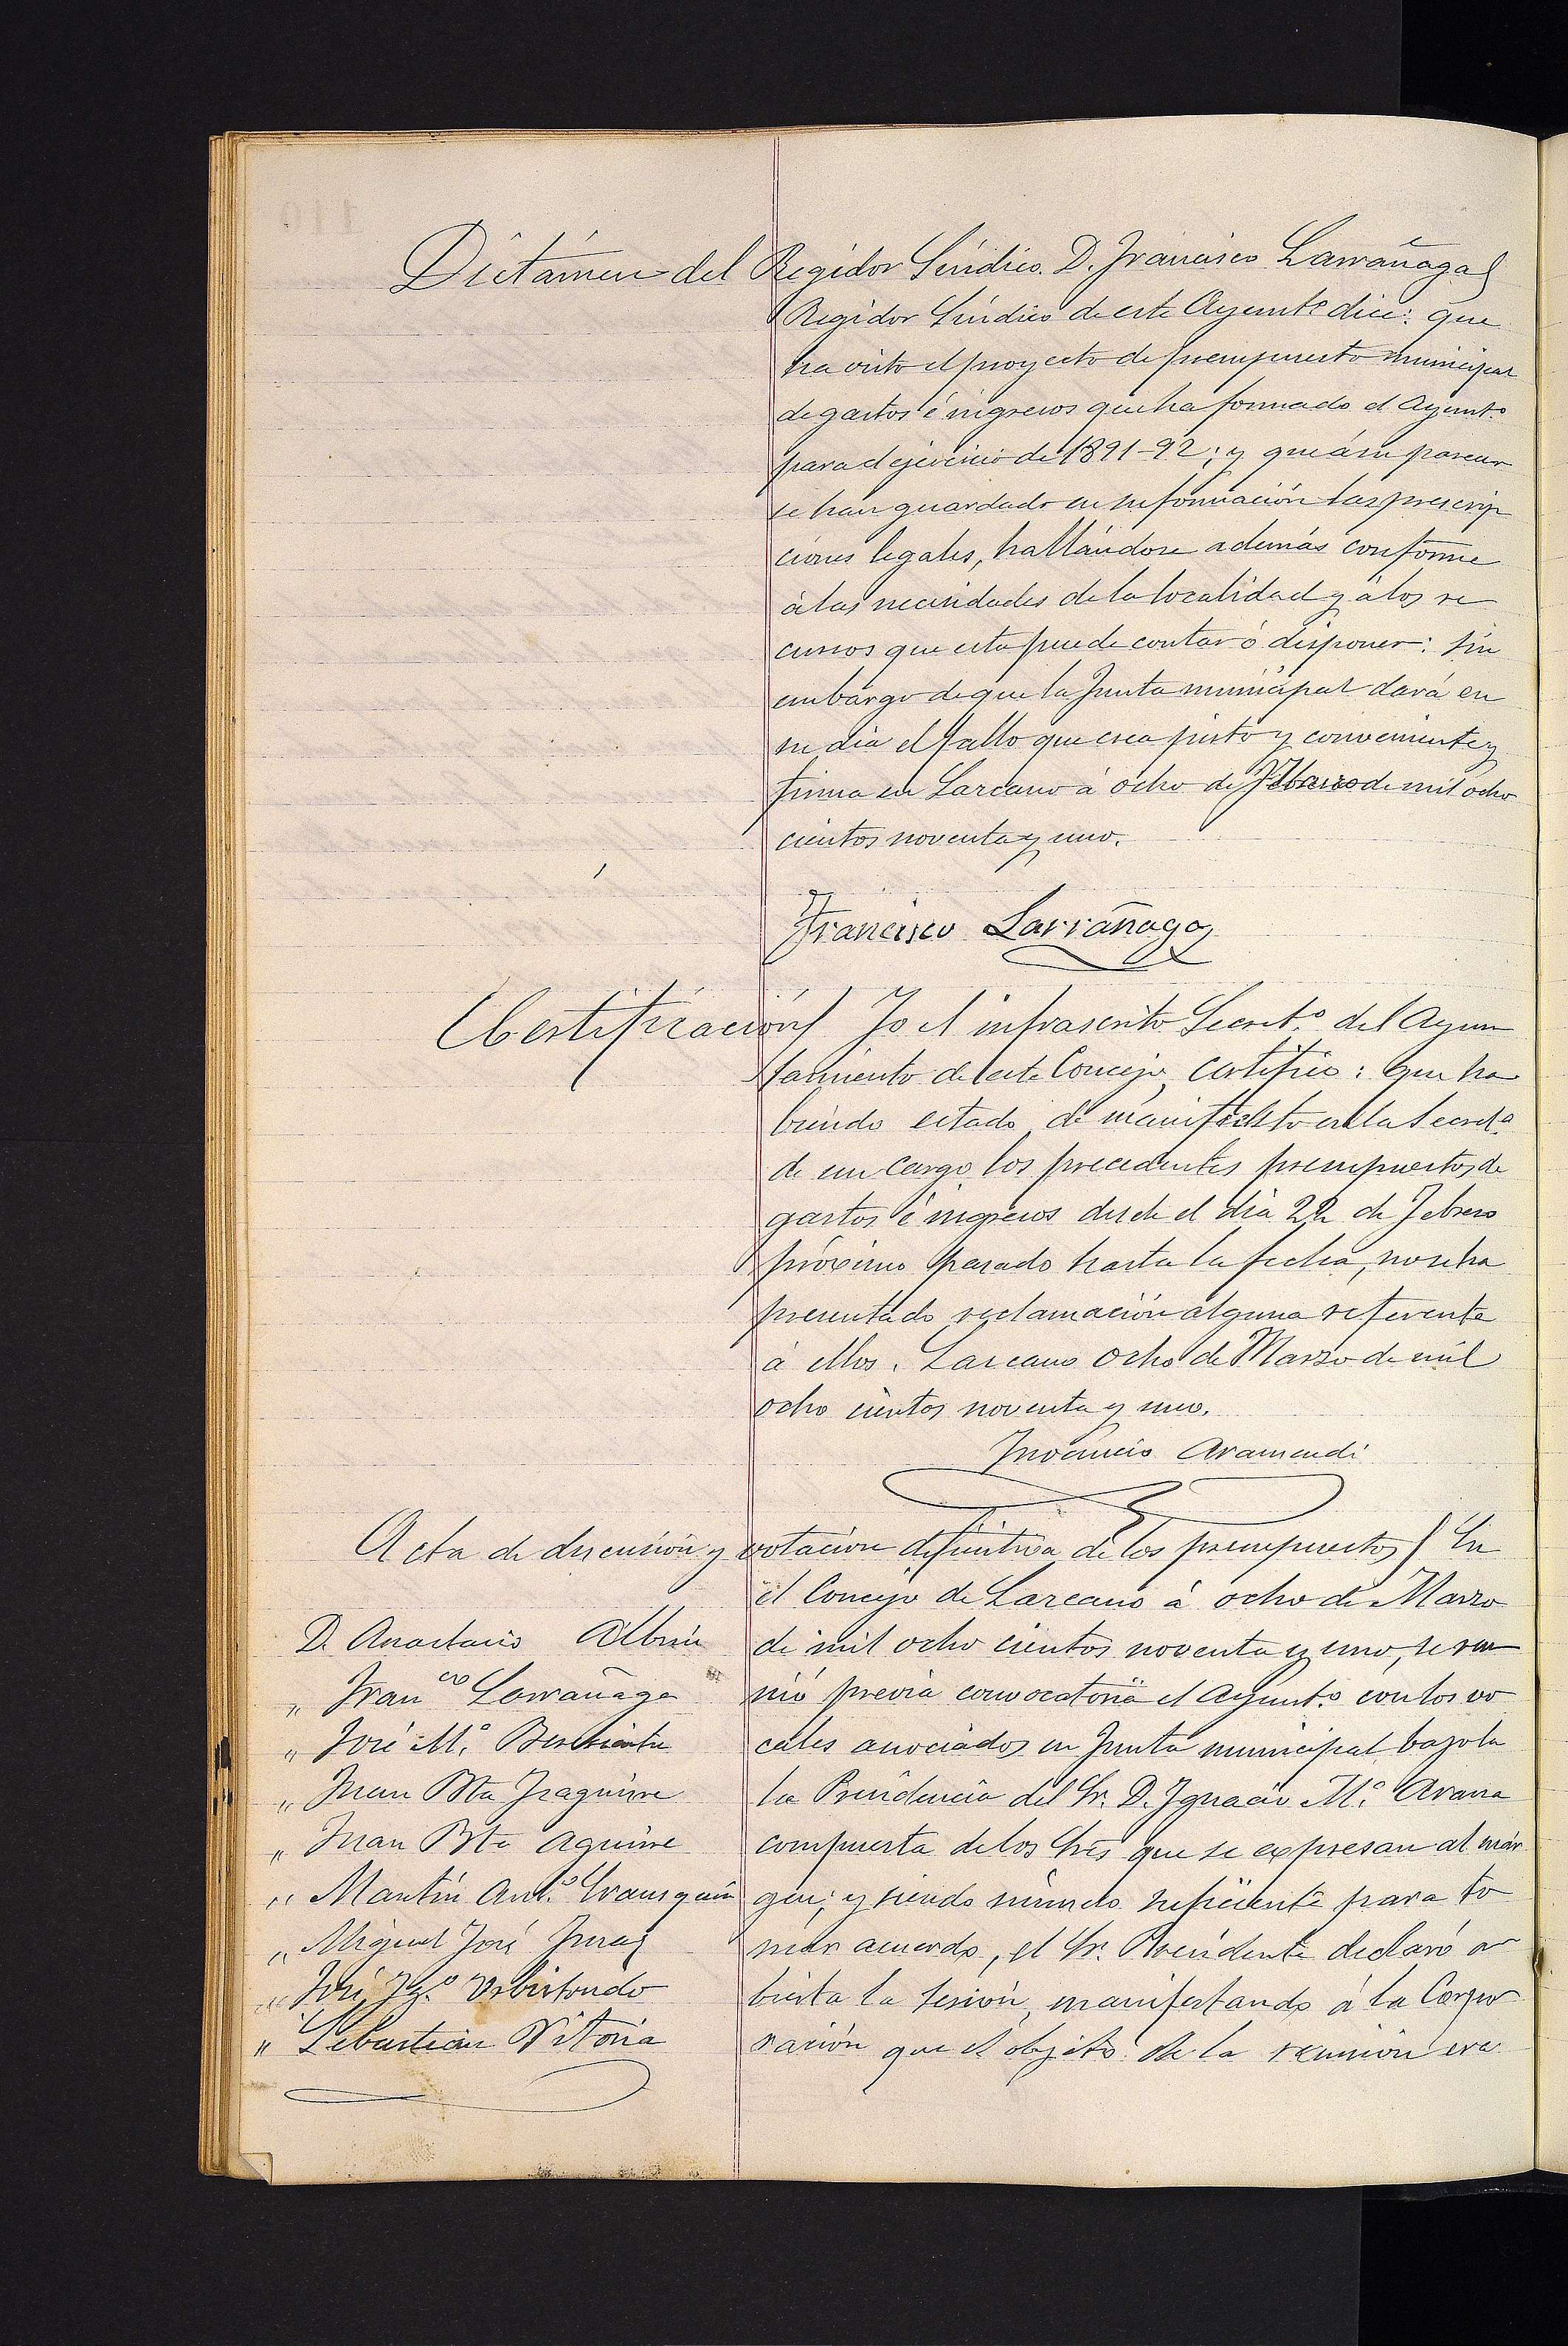 Dictámen del Regidor Síndico. D. Francisco Larrañaga
Regidor Síndico de este Ayuntº dice: que
ha visto el proyecto de presupuesto municipal
de gastos é ingresos que ha formado el Ayuntº
para el ejercicio de 1891-92; y que á su parecer
se han guardado en su formación las prescrip
ciones legales, hallándose además conforme
á las necesidades de la localidad y á los re
cursos que esta puede contar ó disponer: sin
embargo de que la Junta municipal dará en
su dia el fallo que crea justo y conveniente y
firma en Lazcano á ocho de Febrero de mil ocho
cientos noventa y uno.
Francisco Larrañaga
Certificación) Yo el infrascrito Secretº del Ayun
tamiento de este Concejo, certifico: Que ha
biendo estado de manifiesto en la Secretª
de mi cargo los precedentes presupuestos de
gastos é ingresos desde el dia 22 de Febrero
próximo pasado hasta la fecha, no se ha
presentado reclamación alguna referente
á ellos. Lazcano ocho de Marzo de mil
ocho cientos noventa y uno.
Inocencio Aramendi
Acta de discusión y votación definitiva de los presupuestos) En
el Concejo de Lazcano á ocho de Marzo
de mil ocho cientos noventa y uno, se reu
nió previa convocatoria el Ayuntº con los vo
cales asociados en Junta municipal bajo la
la Presidencia del Sr. D. Ignacio Mª Arana
compuesta de los Sres que se expresan al már
gen; y siendo número suficiente para to
mar acuerdo, el Sr. Presidente declaró a
bierta la sesión, manifestando á la Corpo
ración que el objeto de la reunion era
D. Anastacio Albisu
" Franco Larrañaga
" José Mª
" Juan Bta Iraguirre
" Juan Bta Aguirre
" Martín Antº
" Miguel José
" José Igº Urbistondo
" Sebastian Vitoria